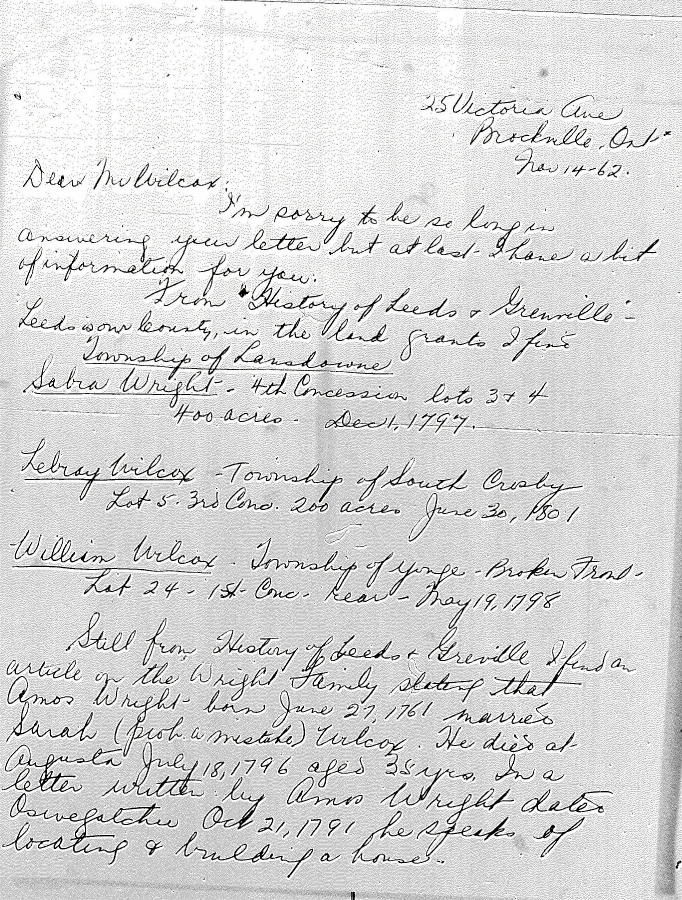 25 Victoria Ave
Brockville, Ont
Nov 14-62.
Dear Mr Wilcox:
I'm sorry to be so long in
answering your letter but at last I have a bit
of information for you.
From "History of Leeds & Grenville" -
Leeds is our County, in the land grants I find
Township of Lansdowne
Sabra Wright - 4th Concession lots 3 & 4
400 acres - Dec 1, 1797.
Lebray Wilcox - Township of South Crosby
Lot 5 - 3rd Conc. 200 acres June 30, 1801
William Wilcox - Township of Yonge - Broken Front -
Lot 24 - 1st Conc - rear - May 19, 1798
Still from History of Leeds & Greville I find an
article on the Wright Family stating that
Amos Wright born June 27, 1761 married
Sarah (prob. a mistake) Wilcox. He died at
Augusta July 18, 1796 aged 35 yrs. In a
letter written by Amos Wright dated
Oswegatchie Oct 21, 1791 he speaks of
locating & building a house.